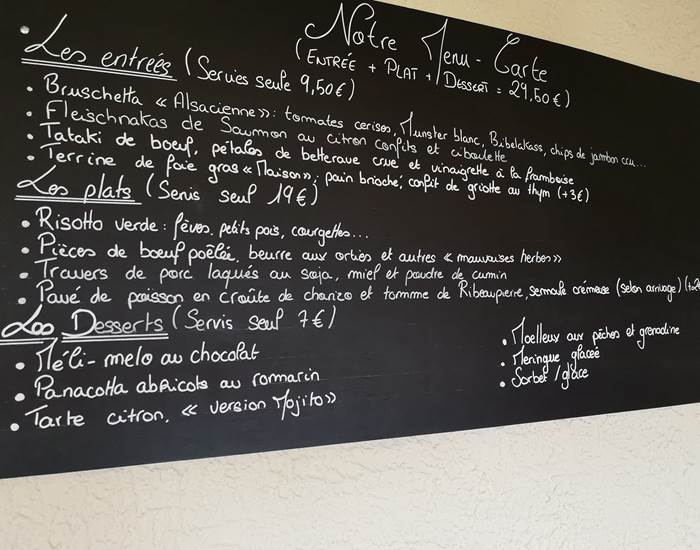 Notre Menu - Carte
(ENTRÉE + PLAT + DESSERT = 29,50€)
Les entrées (Servies seule 9,50€)
• Bruschetta « Alsacienne »: tomates cerises, Munster blanc, Bibelakass, chips de jambon cru...
• Fleischnakas de Saumon au citron confits et ciboulette
• Tataki de boeuf, pétales de betterave crue et vinaigrette à la framboise
• Terrine de foie gras « Maison »; pain brioché, confit de griotte au thym (+3€)
Les plats (Servis seul 19€)
• Risotto verde : fèves, petits pois, courgettes...
• Pièces de boeuf poêlée, beurre aux orties et autres « mauvaises herbes »
• Travers de porc laqués au soja, miel et poudre de cumin
• Pavé de poisson en croûte de chorizo et tomme de Ribeaupierre, semoule crémeuse (selon arrivage)
Les Desserts (Servis seul 7€)
• Méli-melo au chocolat
• Panacotta abricots au romarin
• Tarte citron, « version Mojito »
• Moelleux aux pêches et grenadine
• Meringue glacée
• Sorbet / glace